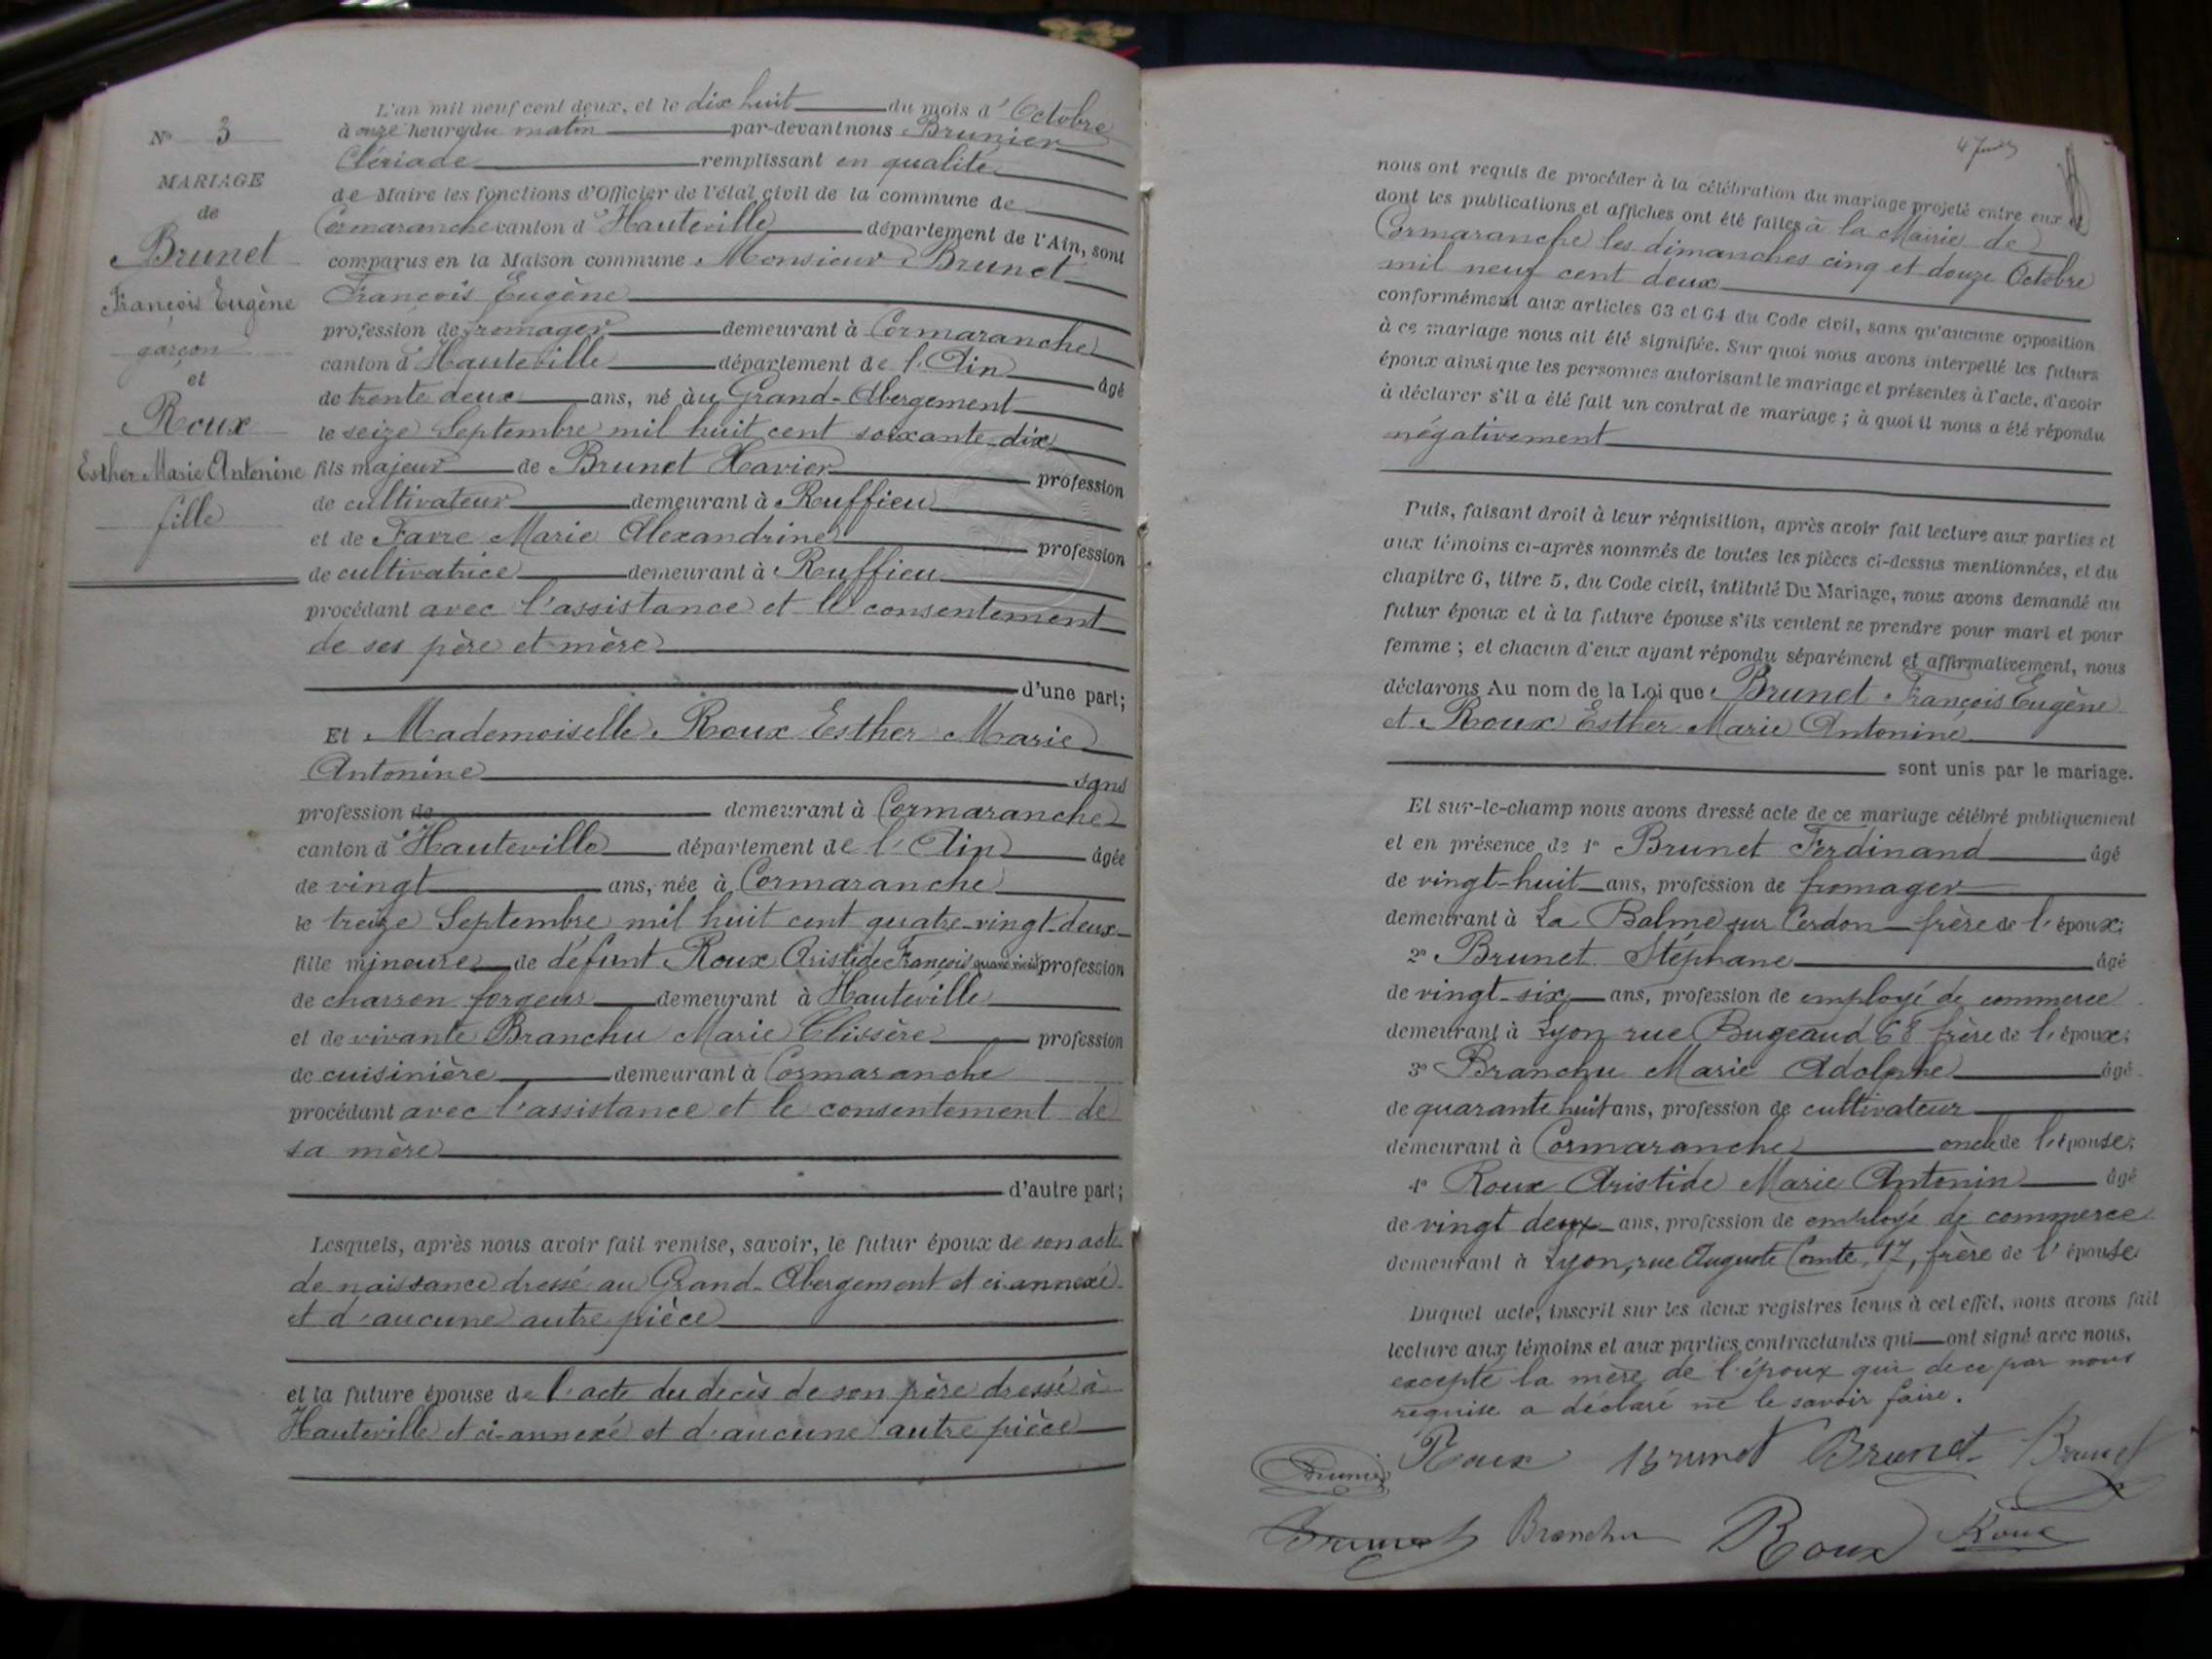 N° 3
MARIAGE
de
Brunet
François Eugène
garçon
et
Roux
Esther Marie Antonine
fille
L'an mil neuf cent deux, et le dix huit du mois d'Octobre
à onze heures du matin par-devant nous Brunier
Clériade remplissant en qualité
de Maire les fonctions d'Officier de l'état civil de la commune de
Cormaranche canton d'Hauteville département de l'Ain, sont
comparus en la Maison commune Monsieur Brunet
François Eugène
profession de fromager demeurant à Cormaranche
canton d'Hauteville département de l'Ain âgé
de trente deux ans, né au Grand-Abergement
le seize Septembre mil huit cent soixante-dix
fils majeur de Brunet Xavier profession
de cultivateur demeurant à Ruffieu
et de Favre Marie Alexandrine profession
de cultivatrice demeurant à Ruffieu
procédant avec l'assistance et le consentement
de ses père et mère
d'une part;
Et Mademoiselle Roux Esther Marie
Antonine sans
profession de demeurant à Cormaranche
canton d'Hauteville département de l'Ain âgée
de vingt ans, née à Cormaranche
le treize Septembre mil huit cent quatre-vingt-deux
fille mineure de défunt Roux Aristide François quand vivait profession
de charron forgeur demeurant à Hauteville
et de vivante Branchu Marie Clissère profession
de cuisinière demeurant à Cormaranche
procédant avec l'assistance et le consentement de
sa mère
d'autre part;
Lesquels, après nous avoir fait remise, savoir, le futur époux de son acte
de naissance dressé au Grand-Abergement et ci-annexé
et d'aucune autre pièce
et la future épouse de l'acte du decès de son père dressé à
Hauteville et ci-annexé et d'aucune autre pièce
nous ont requis de procéder à la célébration du mariage projeté entre eux et
dont les publications et affiches ont été faites à la Mairie de
Cormaranche les dimanches cinq et douze Octobre
mil neuf cent deux
conformément aux articles 63 et 64 du Code civil, sans qu'aucune opposition
à ce mariage nous ait été signifiée. Sur quoi nous avons interpellé les futurs
époux ainsi que les personnes autorisant le mariage et présentes à l'acte, d'avoir
à déclarer s'il a été fait un contrat de mariage; à quoi il nous a été répondu
négativement
Puis, faisant droit à leur réquisition, après avoir fait lecture aux parties et
aux témoins ci-après nommés de toutes les pièces ci-dessus mentionnées, et du
chapitre 6, titre 5, du Code civil, intitulé Du Mariage, nous avons demandé au
futur époux et à la future épouse s'ils veulent se prendre pour mari et pour
femme; et chacun d'eux ayant répondu séparément et affirmativement, nous
déclarons Au nom de la Loi que Brunet François Eugène
et Roux Esther Marie Antonine
sont unis par le mariage.
Et sur-le-champ nous avons dressé acte de ce mariage célébré publiquement
et en présence de 1° Brunet Ferdinand âgé
de vingt-huit ans, profession de fromager
demeurant à La Balme sur Cerdon frère de l'époux;
2° Brunet Stéphane âgé
de vingt-six ans, profession de employé de commerce
demeurant à Lyon rue Bugeaud 68 frère de l'époux;
3° Branchu Marie Adolphe âgé
de quarante huit ans, profession de cultivateur
demeurant à Cormaranche oncle de l'épouse;
4° Roux Aristide Marie Antonin âgé
de vingt deux ans, profession de employé de commerce
demeurant à Lyon, rue Auguste Comte, 17, frère de l'épouse
Duquel acte, inscrit sur les deux registres tenus à cet effet, nous avons fait
lecture aux témoins et aux parties contractantes qui ont signé avec nous,
excepté la mère de l'époux qui de ce par nous
requise a déclaré ne le savoir faire.
Brunier Roux Brunet Brunet Brunet
Brunet Branchu Roux Roux